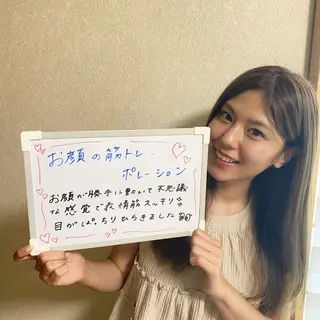 お顔の筋トレ.
ポレーション
お顔が勝手に動いて不思議
な感覚で表情筋スッキリ☆
目がぱっちりひらきました